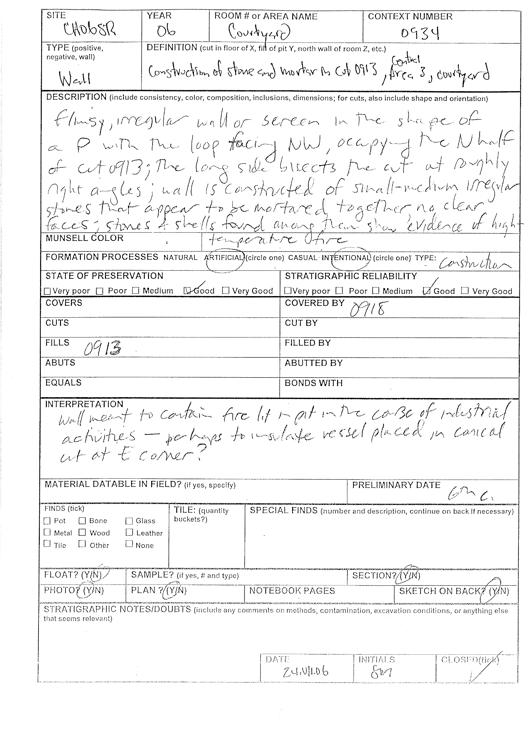 SITE CHO6SR YEAR 06 ROOM # or AREA NAME Courtyard CONTEXT NUMBER 0934
TYPE (positive, negative, wall) Wall
DEFINITION (cut in floor of X, fill of pit Y, north wall of room Z, etc.)
Construction of stone and mortar in cut 0913, central area 3, courtyard
DESCRIPTION (include consistency, color, composition, inclusions, dimensions; for cuts, also include shape and orientation)
Flimsy, irregular wall or screen in the shape of
a P with the loop facing NW, occupying the N half
of cut 0913; the long side bisects the cut at roughly
right angles; wall is constructed of small-medium irregular
stones that appear to be mortared together no clear
faces; stones & shells found among them show evidence of high
temperature fire
MUNSELL COLOR
FORMATION PROCESSES NATURAL ARTIFICIAL (circle one) CASUAL INTENTIONAL (circle one) TYPE: Construction
STATE OF PRESERVATION
Very poor Poor Medium Good Very Good
STRATIGRAPHIC RELIABILITY
Very poor Poor Medium Good Very Good
COVERS COVERED BY 0918
CUTS CUT BY
FILLS 0913 FILLED BY
ABUTS ABUTTED BY
EQUALS BONDS WITH
INTERPRETATION
Wall meant to contain fire lit in pit in the course of industrial
activities – perhaps to insulate vessel placed in conical
cut at E corner?
MATERIAL DATABLE IN FIELD? (if yes, specify) PRELIMINARY DATE 6th c.
FINDS (tick)
Pot Bone Glass
Metal Wood Leather
Tile Other None
TILE: (quantity buckets?)
SPECIAL FINDS (number and description, continue on back if necessary)
FLOAT? (Y/N) SAMPLE? (if yes, # and type) SECTION? (Y/N)
PHOTO? (Y/N) PLAN ? (Y/N) NOTEBOOK PAGES SKETCH ON BACK? (Y/N)
STRATIGRAPHIC NOTES/DOUBTS (include any comments on methods, contamination, excavation conditions, or anything else
that seems relevant)
DATE 24.VII.06 INITIALS CLOSED(tick)